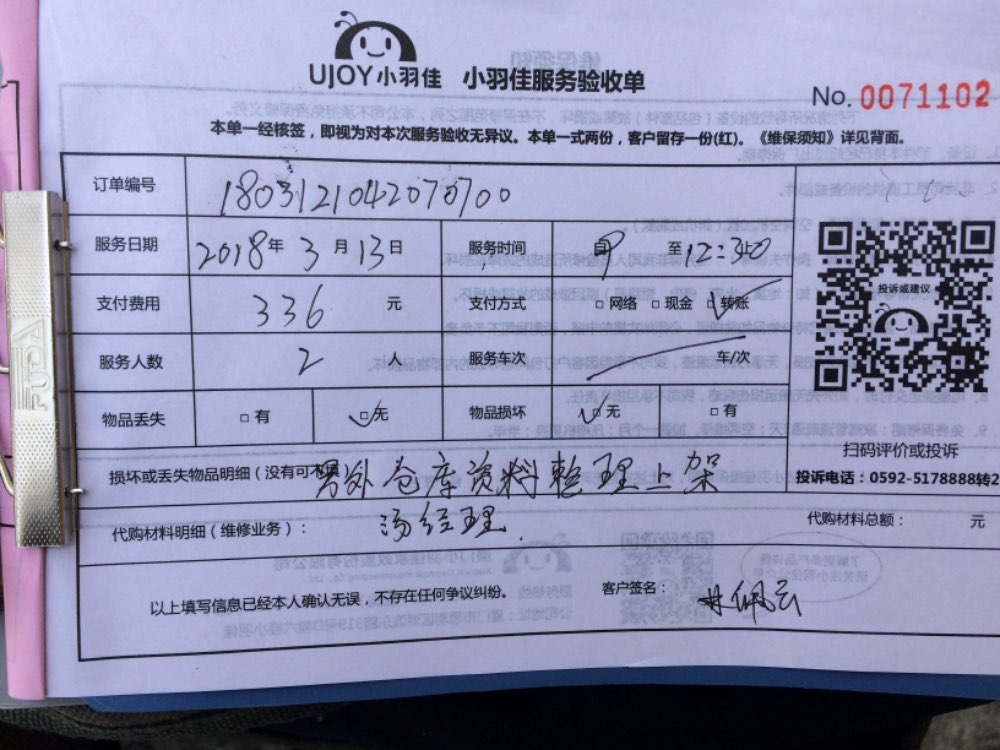 UJOY小羽佳 小羽佳服务验收单
No. 0071102
本单一经核签，即视为对本次服务验收无异议。本单一式两份，客户留存一份(红)。《维保须知》详见背面。
订单编号
服务日期 2018年 3月 13日 服务时间 自 至12:30
支付费用 336 元 支付方式 □网络 □现金 □转账
投诉或建议
服务人数 2 人 服务车次 车/次
物品丢失 □有 □无 物品损坏 □无 □有
扫码评价或投诉
损坏或丢失物品明细(没有可不填 仓库资料整理上架
投诉电话：0592-5178888转2
代购材料明细(维修业务)： 汤经理
代购材料总额： 元
以上填写信息已经本人确认无误，不存在任何争议纠纷。
客户签名： 林佩云